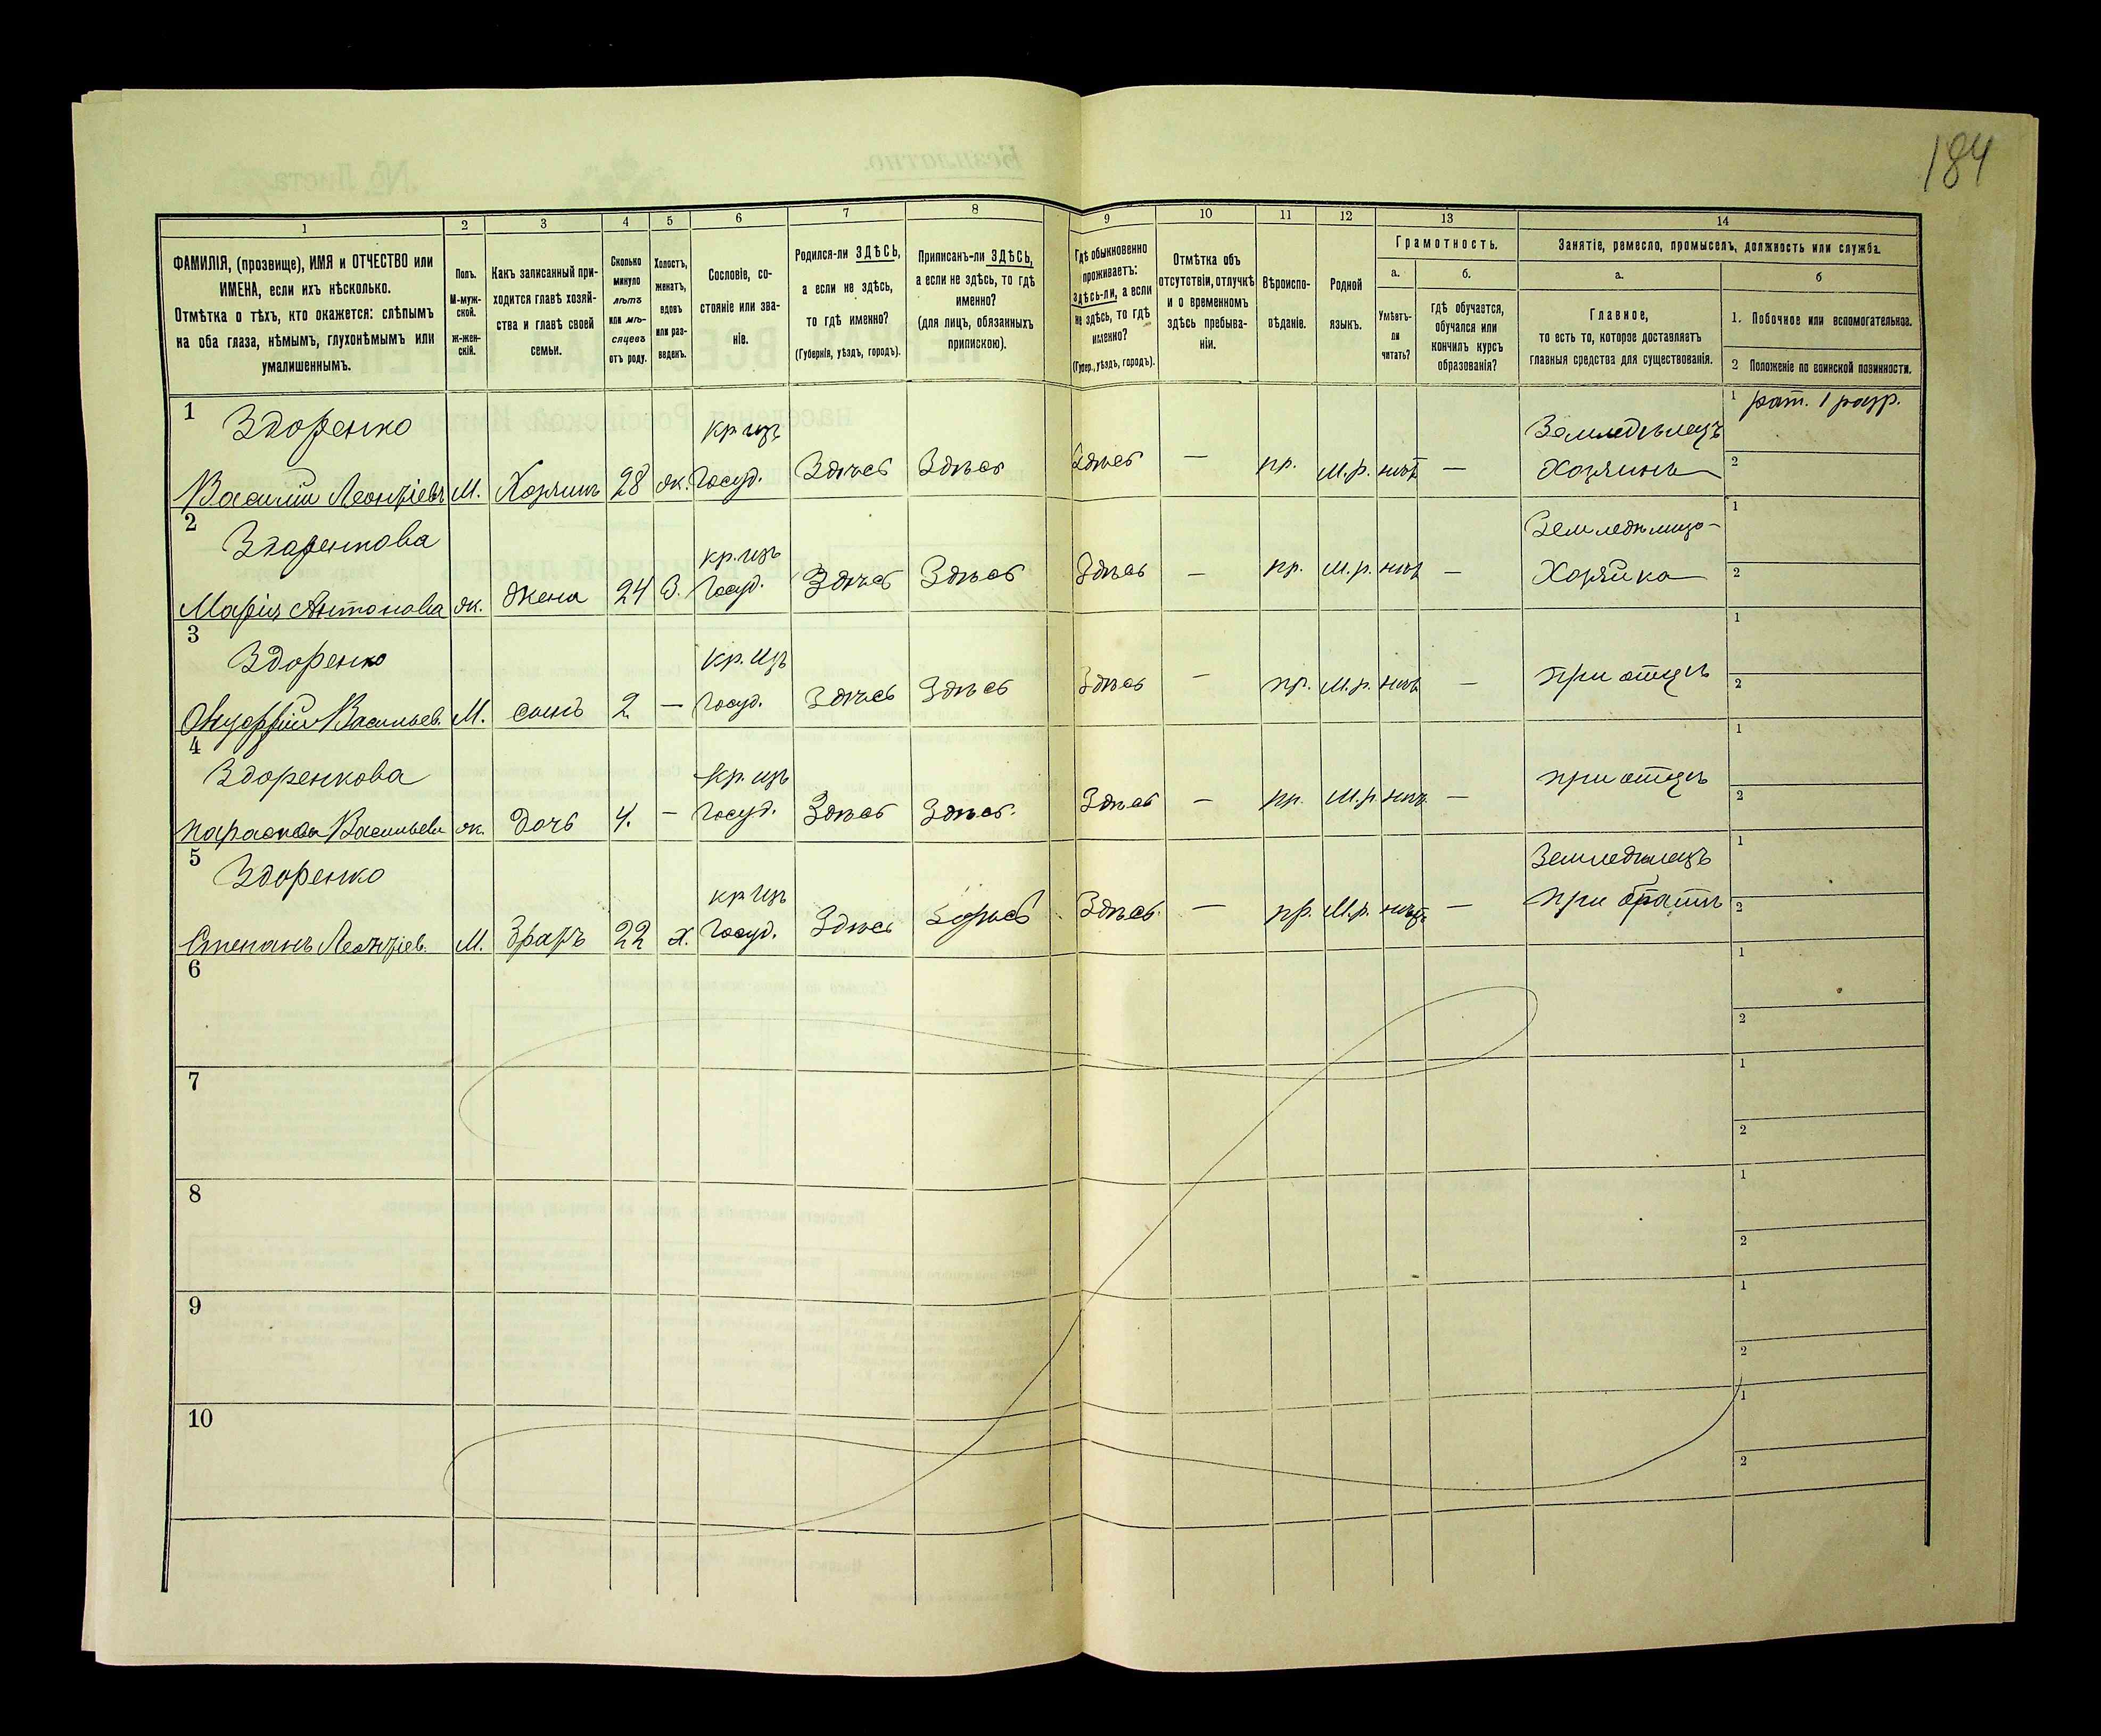 184
1 2 3 4 5 6 7 8 9 10 11 12 13 14
ФАМИЛІЯ, (прозвище), ИМЯ и ОТЧЕСТВО или
ИМЕНА, если ихъ нѣсколько.
Отмѣтка о тѣхъ, кто окажется: слѣпымъ
на оба глаза, нѣмымъ, глухонѣмымъ или
умалишеннымъ.
Полъ.
М-муж-
ской.
Ж-жен-
скій.
Какъ записанный при-
ходится главѣ хозяй-
ства и главѣ своей
семьи.
Сколько
минуло
лѣтъ
или мѣ-
сяцевъ
отъ роду.
Холостъ,
женатъ,
вдовъ
или раз-
веденъ.
Сословіе, со-
стояніе или зва-
ніе.
Родился-ли ЗДѢСЬ,
а если не здѣсь,
то гдѣ именно?
(Губернія, уѣздъ, городъ).
Приписанъ-ли ЗДѢСЬ,
а если не здѣсь, то гдѣ
именно?
(для лицъ, обязанныхъ
припискою).
Гдѣ обыкновенно
проживаетъ:
здѣсь-ли, а если
не здѣсь, то гдѣ
именно?
(Губер., уѣздъ, городъ).
Отмѣтка объ
отсутствіи, отлучкѣ
и о временномъ
здѣсь пребыва-
ніи.
Вѣроиспо-
вѣданіе.
Родной
языкъ.
Грамотность.
а. б.
Умѣетъ-
ли
читать?
гдѣ обучается,
обучался или
кончилъ курсъ
образованія?
Занятіе, ремесло, промыселъ, должность или служба.
а. б
Главное,
то есть то, которое доставляетъ
главныя средства для существованія.
1. Побочное или вспомогательное.
2 Положеніе по воинской повинности.
1 Здоренко кр изъ Земледѣлецъ 1 рат. 1 разр.
Василій Леонтіевъ М. Хозяинъ 28 ж. Госуд. Здѣсь Здѣсь Здѣсь — пр. М.р. нѣтъ — Хозяинъ 2
2 Здоренкова кр. изъ 1
Марія Антонова ж. Жена 24 З. Госуд. Здѣсь Здѣсь Здѣсь — пр. М.р. нѣт — Хозяйка 2
3 Здоренко кр. изъ 1
Онуфрій Васильев. М. сынъ 2 — Госуд. Здѣсь Здѣсь Здѣсь — пр. М.р. нѣт — при отцѣ 2
4 Здоренкова кр. изъ 1
Параска Васильева ж. Дочь 4. — Госуд. Здѣсь Здѣсь. Здѣсь — пр. М.р. нѣт. — при отцѣ 2
5 Здоренко кр изъ Земледѣлецъ 1
Степанъ Леонтіев. М. 22 х. Госуд. Здѣсь Здѣсь Здѣсь. — пр. М.р. нѣтъ — при братѣ 2
6 1
2
7 1
2
8 1
2
9 1
2
10 1
2